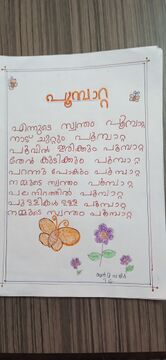 പൂമ്പാറ്റ
എന്നുടെ സ്വന്തം പൂമ്പാറ്റ
നാട് ചുറ്റും പൂമ്പാറ്റ
പൂവിൽ ഇരിക്കും പൂമ്പാറ്റ
തേൻ കുടിക്കും പൂമ്പാറ്റ
പറന്നു പോകും പൂമ്പാറ്റ
നമ്മുടെ സ്വന്തം പൂമ്പാറ്റ
പല നിറത്തിൽ പൂമ്പാറ്റ
പുള്ളികൾ ഉള്ള പൂമ്പാറ്റ
നമ്മുടെ സ്വന്തം പൂമ്പാറ്റ